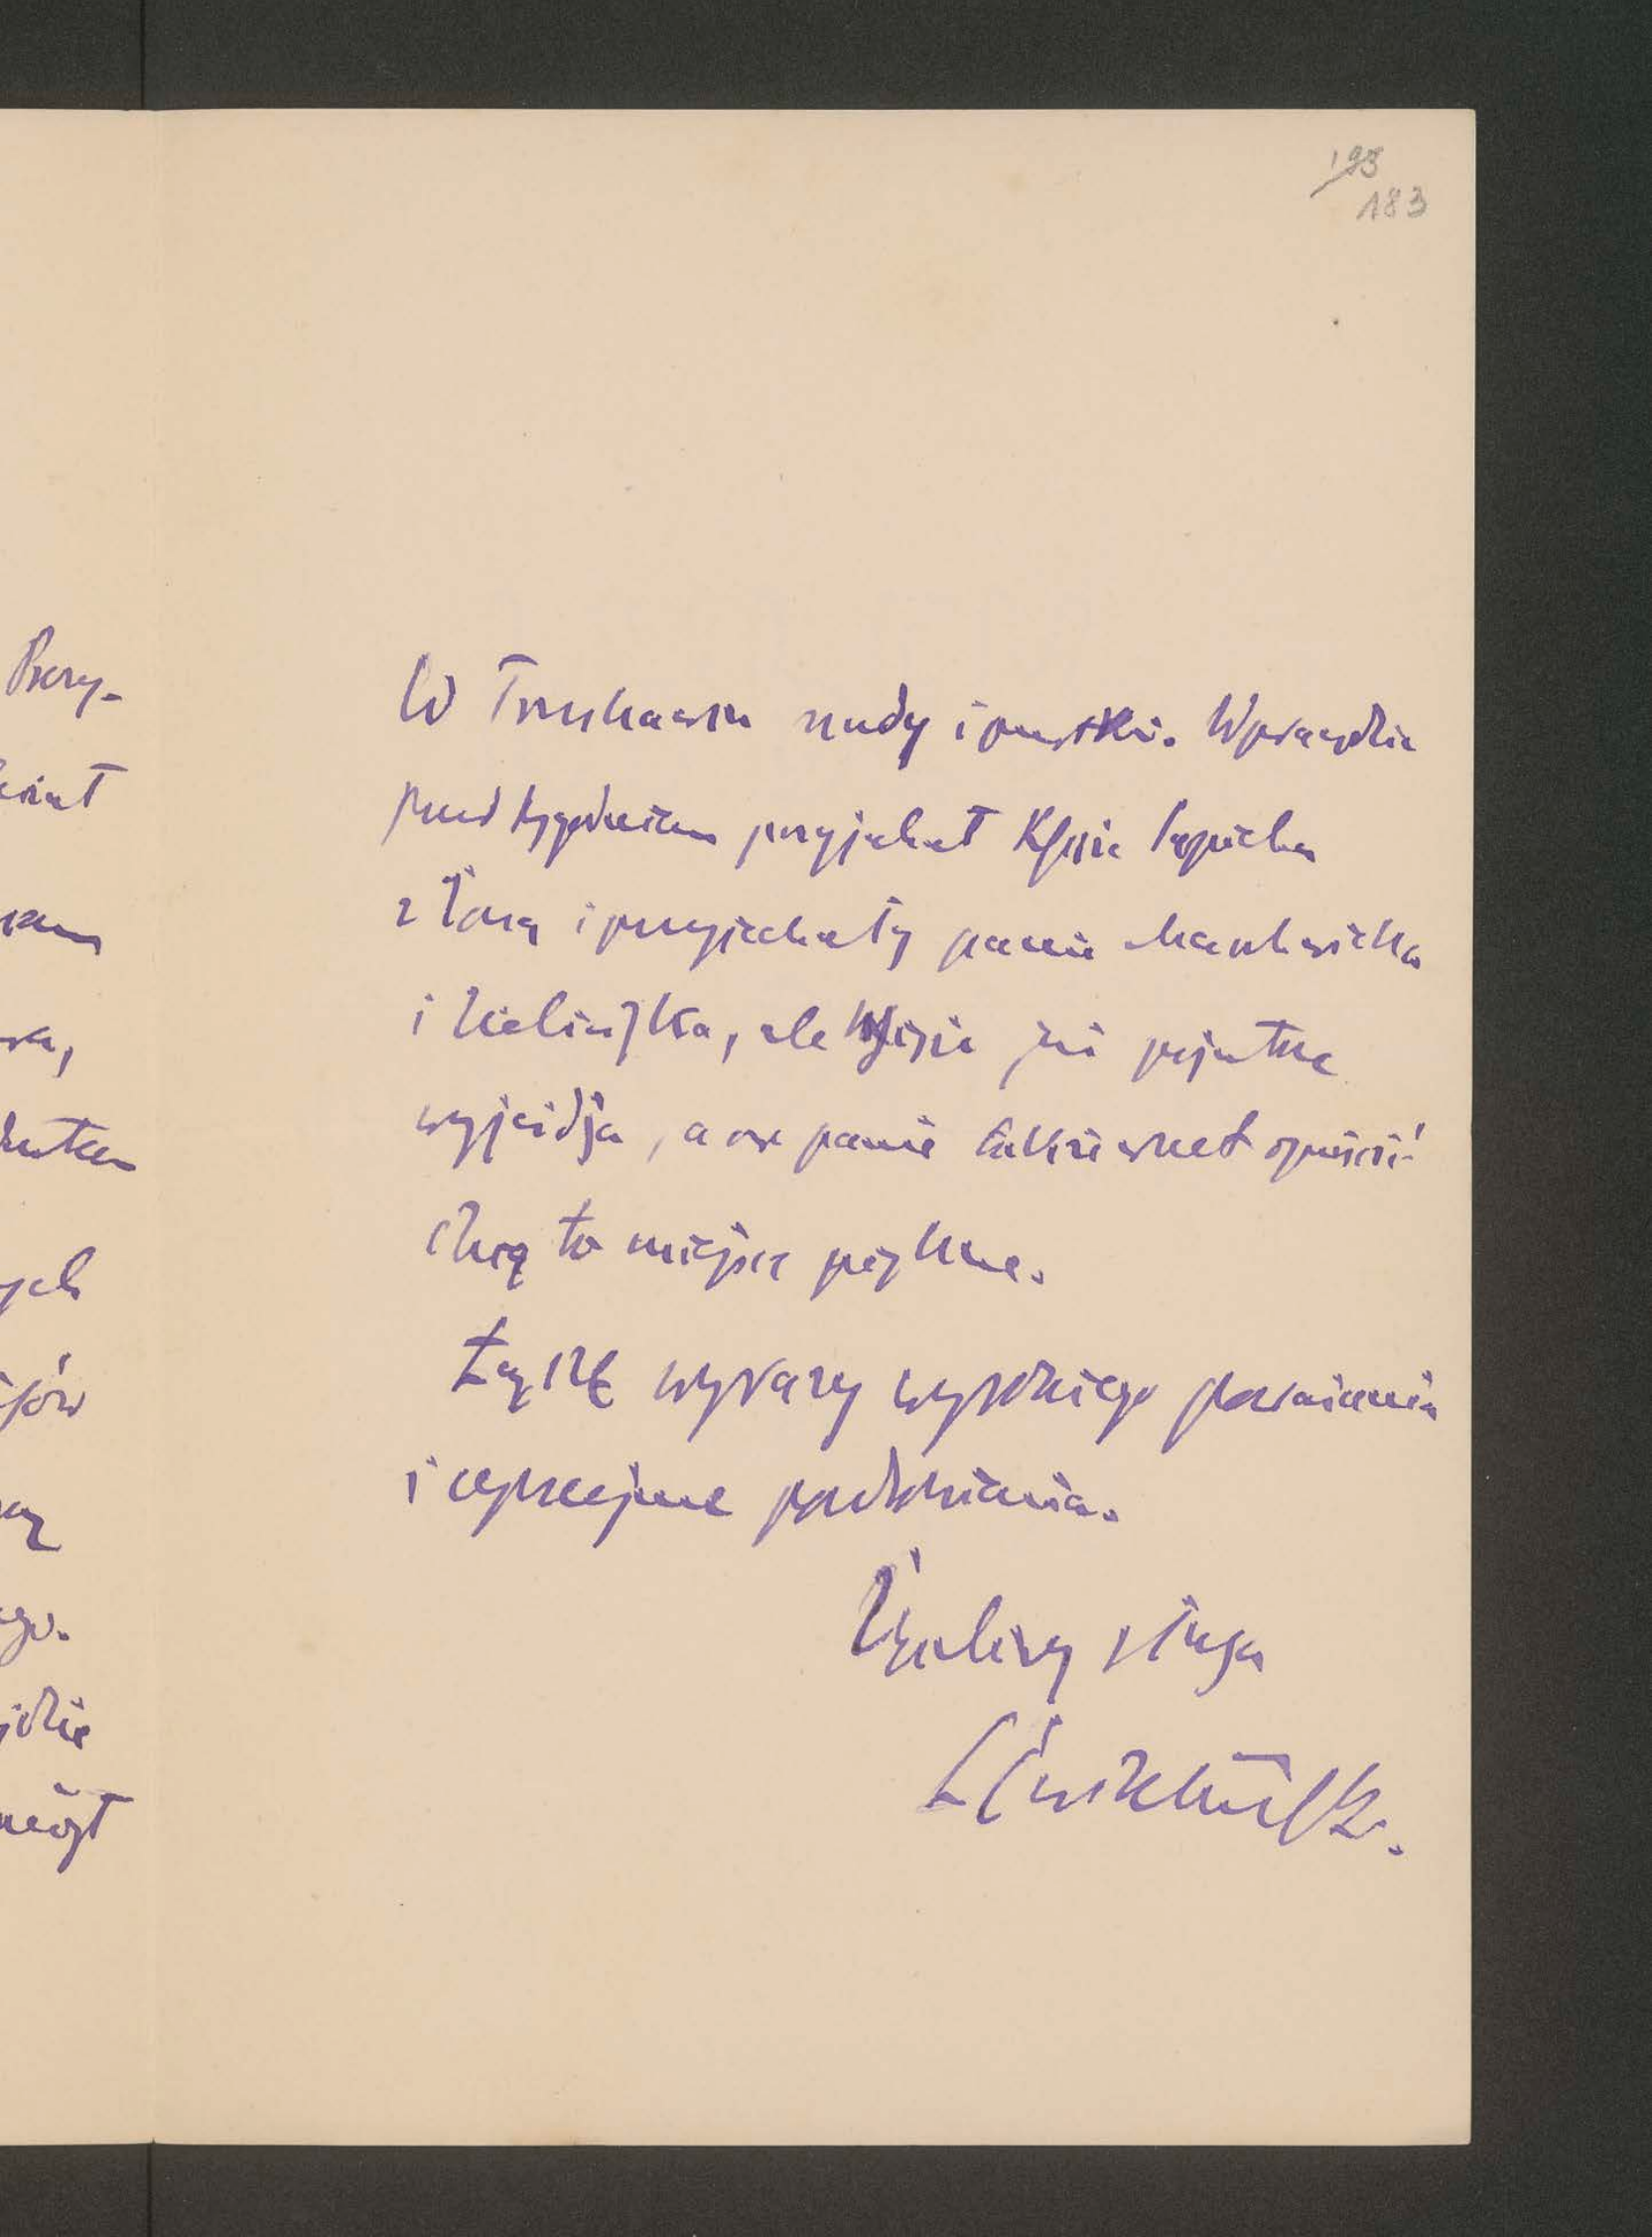 193
183
W Truskawcu nudy i pustki. Wprawdzie
przed tygodniem przyjechał Księże Sapieha
z żoną i przyjechały panie
i Zielińska, ale Księże już pojutrze
wyjeżdża, a one panie także wnet opuścić
chcą to miejsce piękne.
Łączę wyrazy wysokiego poważania
i uprzejme pozdrowienia.
Życzliwy sługa
Ćwikliński.
Bory-
ych
ego.
mógł